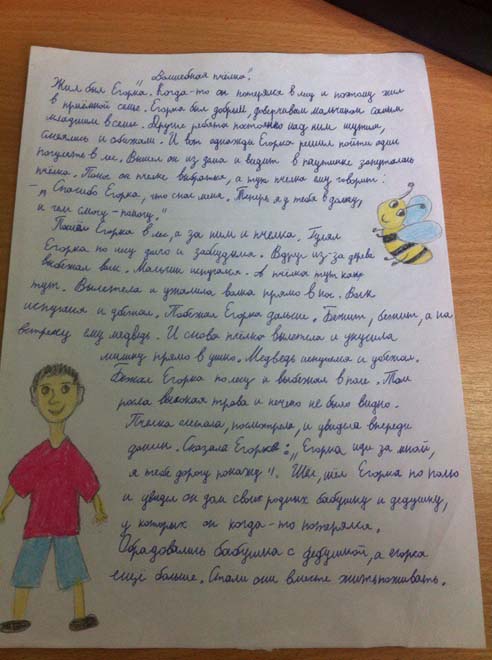 „Волшебная пчёлка".
Жил был Егорка. Когда-то он потерялся в лесу и поэтому жил
в приёмной семье. Егорка был добрым, доверчивым мальчиком самым
младшим в семье. Другие ребята постоянно над ним шутили,
смеялись и обижали. И вот однажды Егорка решил пойти один
погулять в лес. Вышел он из дома и видит в паутинке запуталась
пчёлка. Помог он пчёлке выбраться, а тут пчёлка ему говорит:
- „Спасибо Егорка, что спас меня. Теперь я у тебя в долгу,
и чем смогу - помогу."
Пошёл Егорка в лес, а за ним и пчёлка. Гулял
Егорка по лесу долго и заблудился. Вдруг из-за дерева
выбежал волк. Мальчик испугался. А пчёлка тут как
тут. Вылетела и ужалила волка прямо в нос. Волк
испугался и убежал. Побежал Егорка дальше. Бежит, бежит, а на
встречу ему медведь. И снова пчёлка вылетела и укусила
мишку прямо в ушко. Медведь испугался и убежал.
Бежал Егорка по лесу и выбежал в поле. Там
росла высокая трава и ничего не было видно.
Пчёлка слетала, посмотрела, и увидела впереди
домик. Сказала Егорке: „Егорка иди за мной,
я тебе дорогу покажу". Шёл, шёл Егорка по полю
и увидел он дом своих родных бабушку и дедушку,
у которых он когда-то потерялся.
Обрадовались бабушка с дедушкой, а егорка
ещё больше. Стали они вместе жить поживать.